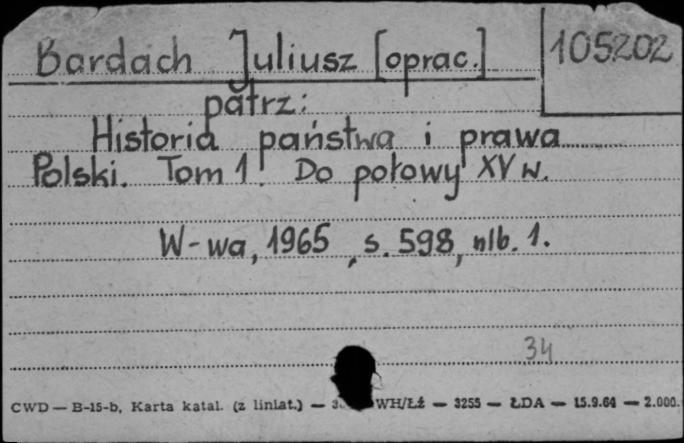 Bardach Juliusz [oprac.] 105202
patrz:
Historia państwa i prawa
Polski. Tom 1. Do połowy XV w.
W-wa, 1965, s. 598, nlb. 1.
34
CWD — B-15-b, Karta katal. (z liniat.) — WH/Łż — 3255 — ŁDA — 15.9.64 — 2.000.